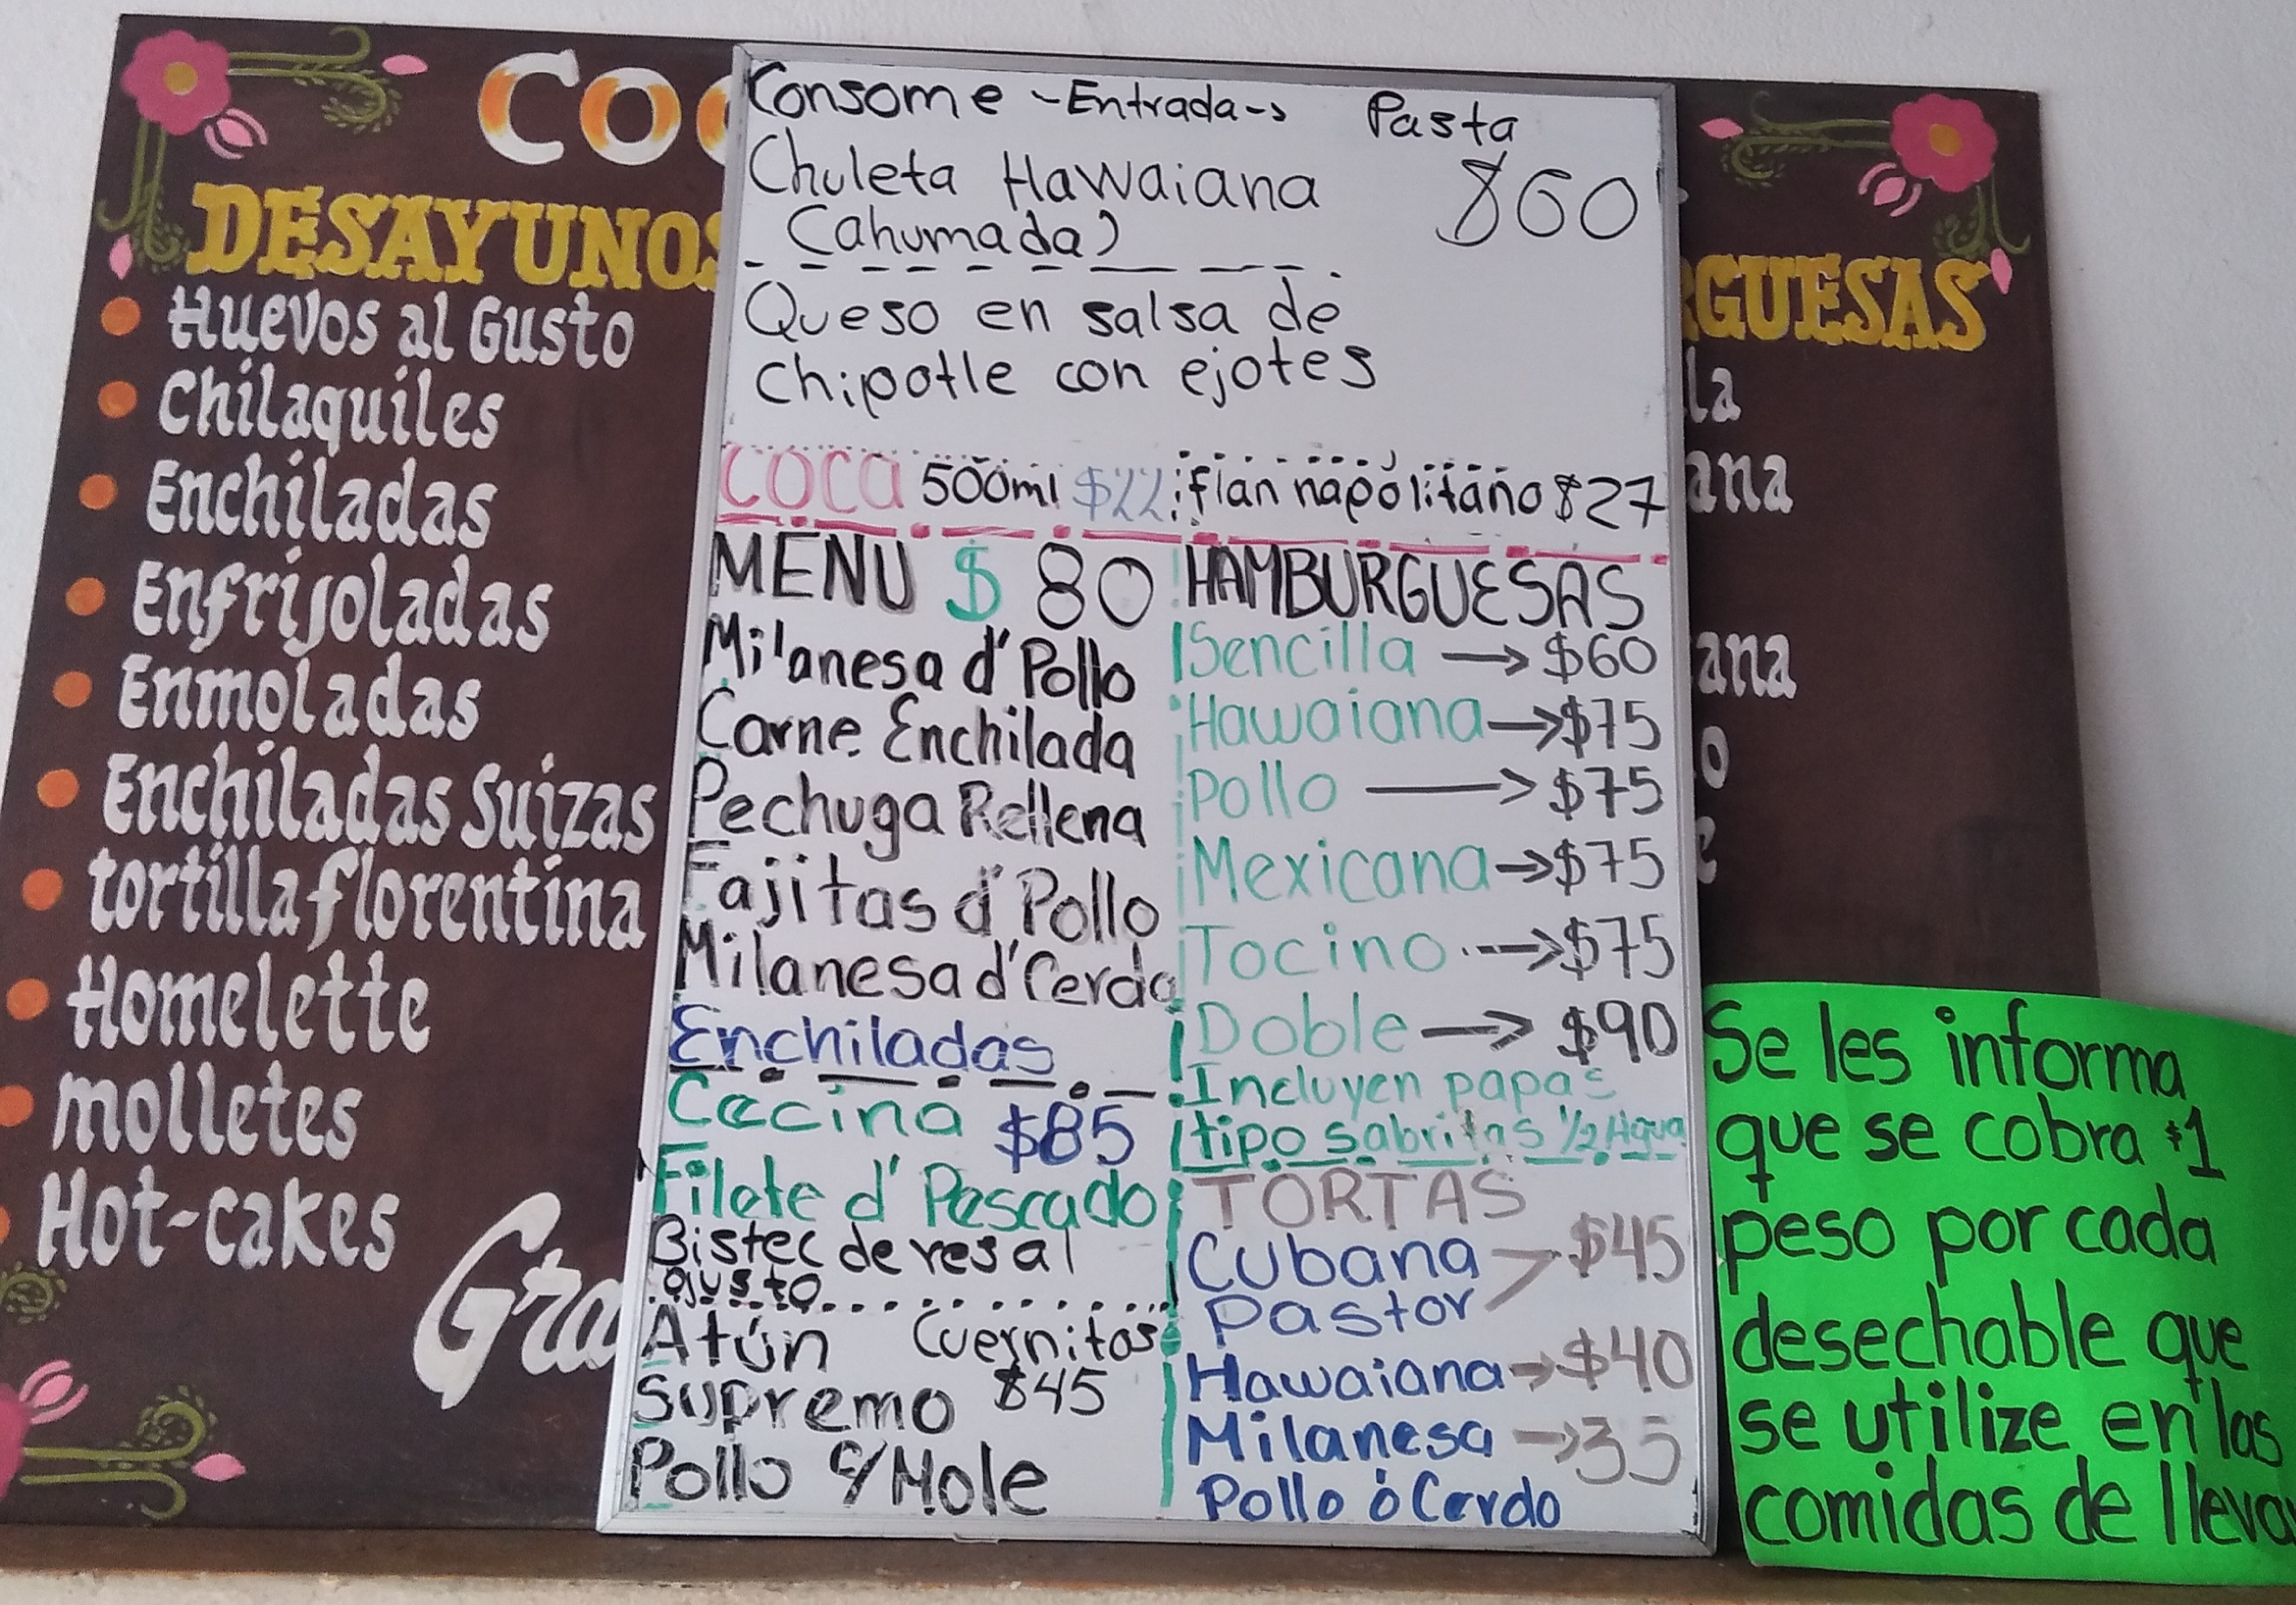 DESAYUNOS
Huevos al Gusto
Chilaquiles
Enchiladas
Enfrijoladas
Enmoladas
Enchiladas Suizas
tortilla florentina
Homelette
molletes
Hot-cakes
Consome -Entrada-> Pasta
Chuleta Hawaiana $60
(ahumada)
Queso en salsa de
chipotle con ejotes
COCA 500ml $22 flan napolitano $27
MENU $ 80
Milanesa d' Pollo
Carne Enchilada
Pechuga Rellena
Fajitas d' Pollo
Milanesa d' Cerdo
Enchiladas
Cecina $85
Filete d' Pescado
Bistec de res al
gusto
Atún Cuernitos
Supremo $45
Pollo c/Mole
HAMBURGUESAS
Sencilla → $60
Hawaiana → $75
Pollo → $75
Mexicana → $75
Tocino → $75
Doble → $90
Incluyen papas
tipo sabritas 1/2 Agua
TORTAS
Cubana > $45
Pastor
Hawaiana → $40
Milanesa → 35
Pollo ó Cerdo
RGUESAS
la
ana
ana
o
e
Se les informa
que se cobra $1
peso por cada
desechable que
se utilize en las
comidas de lleva